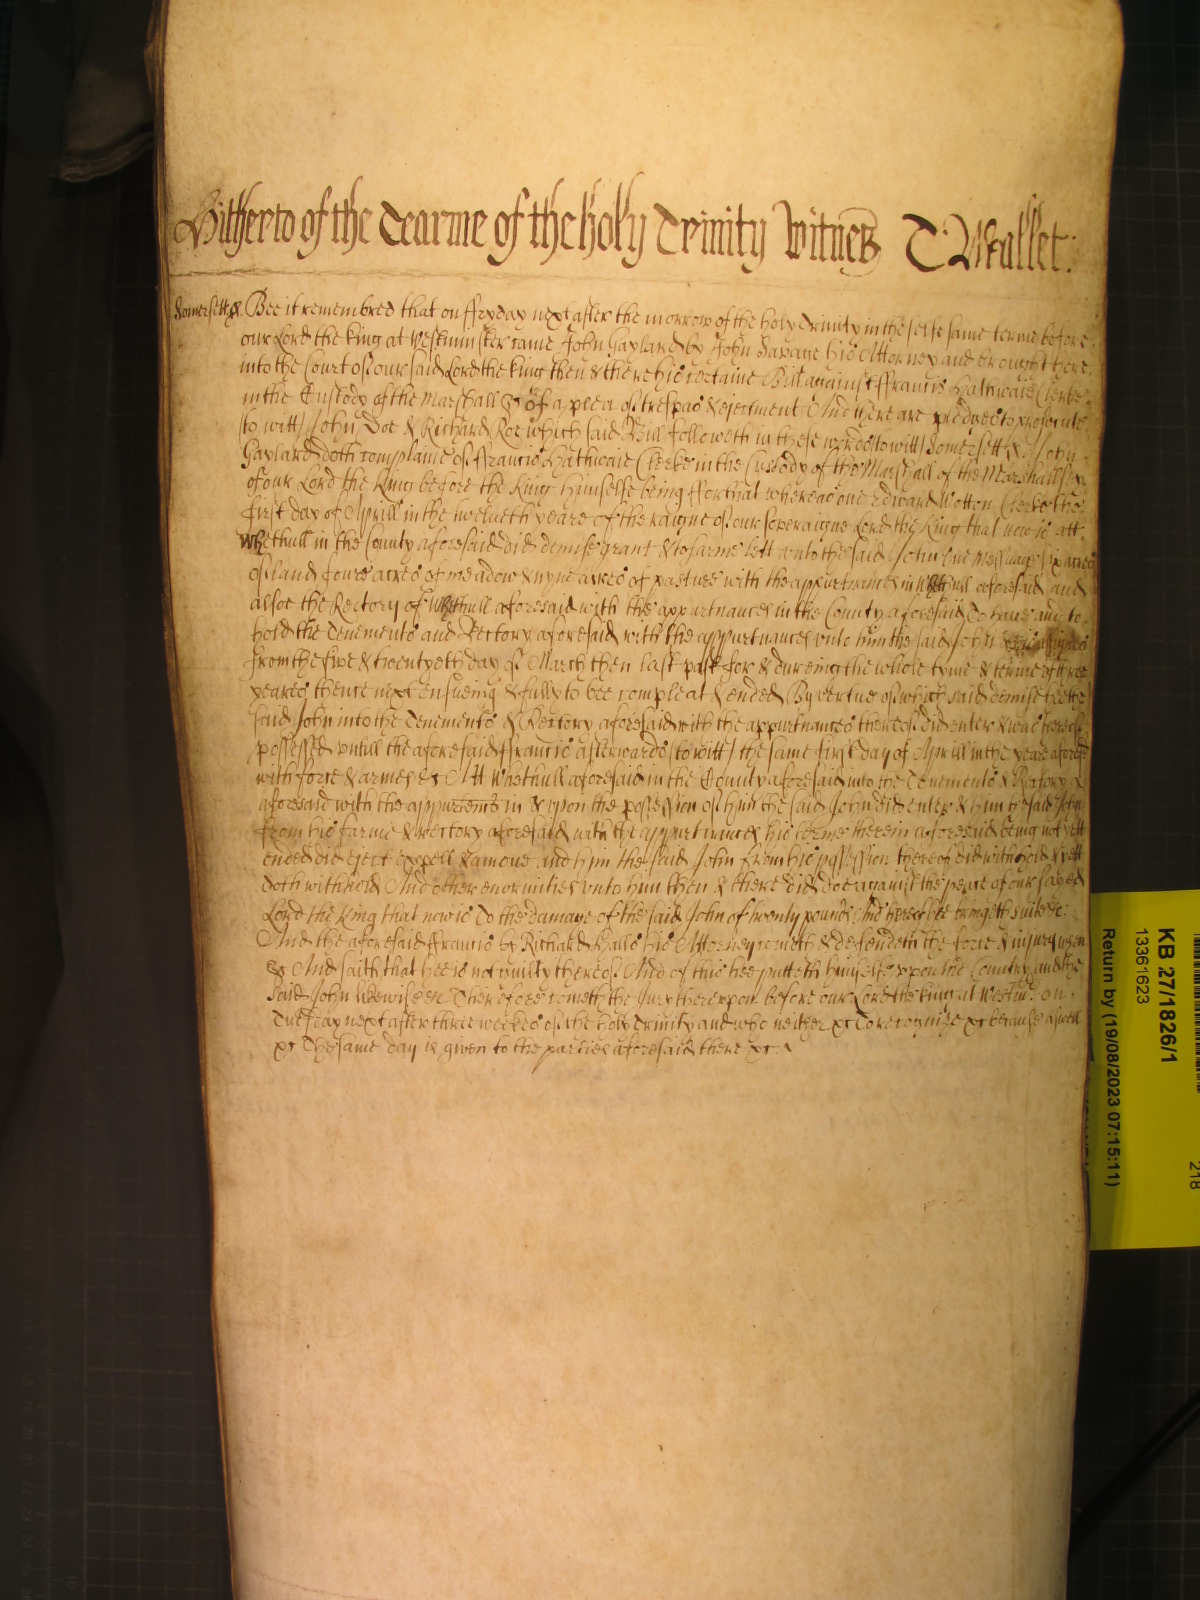 Hitherto of the Tearme of the holy Trinity Witnes T: Mallet:
Somersett ss. Bee it remembred that on ffryday next after the morrow of the holy Trinity in the selfe same terme before
our Lord the King at Westminster came John Gaylard by John Savage his Attorney and brought here
into the Court of our said Lord the king then & there his certaine Bill against ffrancis Hathwaie Clerke
in the Custody of the Marshall &c of a plea of trespas & ejectment And there are pledges to prosecute
to witt John Doe & Richard Roe which said Bill followeth in these wordes to witt Somersett ss. John
Gaylard doth complaine of ffrancis Hathwaie Clerke in the Custody of the Marshall of the Marshallsey
of our Lord the King before the King himselfe being ffor that whereas one Edward Cotton Clerke the
first day of Aprill in the twelueth yeare of the raigne of our soveraigne Lord the King that now is att
Whethull in the County aforesaid did demise grant & to farme lett unto the said John one Messuage six acres
of land foure acres of meadow & nyne acres of pasture with the appurtnances in Whethull aforesaid and
alsoe the Rectory of Whethull aforesaid with the appurtnances in the County aforesaid To haue and to
hold the Tenements and Rectory aforesaid with the appurtnances unto him the said John & his assignes
from the five & twentyeth day of March then last past for & dureing the whole tyme & terme of three
yeares thence next ensueing & fully to bee compleat & ended By vertue of which said demise the
said John into the Tenements & Rectory aforesaid with the appurtnances thereof did enter & was thereof
possessed untill the aforesaid ffrancis afterwards to witt the same first day of Aprill in the yeare aforesaid
with force & armes &c Att Whethull aforesaid in the County aforesaid into the Tenements & Rectory
aforesaid with the appurtents in & upon the possession of him the said John did enter & him the said John
from his farme & Rectory aforesaid with the appurtnances his terme therein aforesaid being not yett
ended did eject expell & amoue and him the said John from his possession thereof did withhold & yett
doth withhold And other enormities unto him then & there did doe against the peace of our sayed
Lord the King that now is To the damage of the said John of twenty pounds And thereof hee bringeth suite &c:
And the aforesaid ffrancis by Richard Hals his Attorney cometh & defendeth the force & injury when
&c And saith that hee is not guilty thereof And of this hee putteth himselfe uppon the Country and the
said John likewise &c Therefore cometh the Jury thereuppon before our Lord the king at Westm: on
Tuesday next after three weekes of the holy Trinity and who neither &c To recognize &c because aswell
&c The same day is given to the parties aforesaid there &c:
KB 27/1826/1
13361623
Return by (19/08/2023 07:15:11)
218